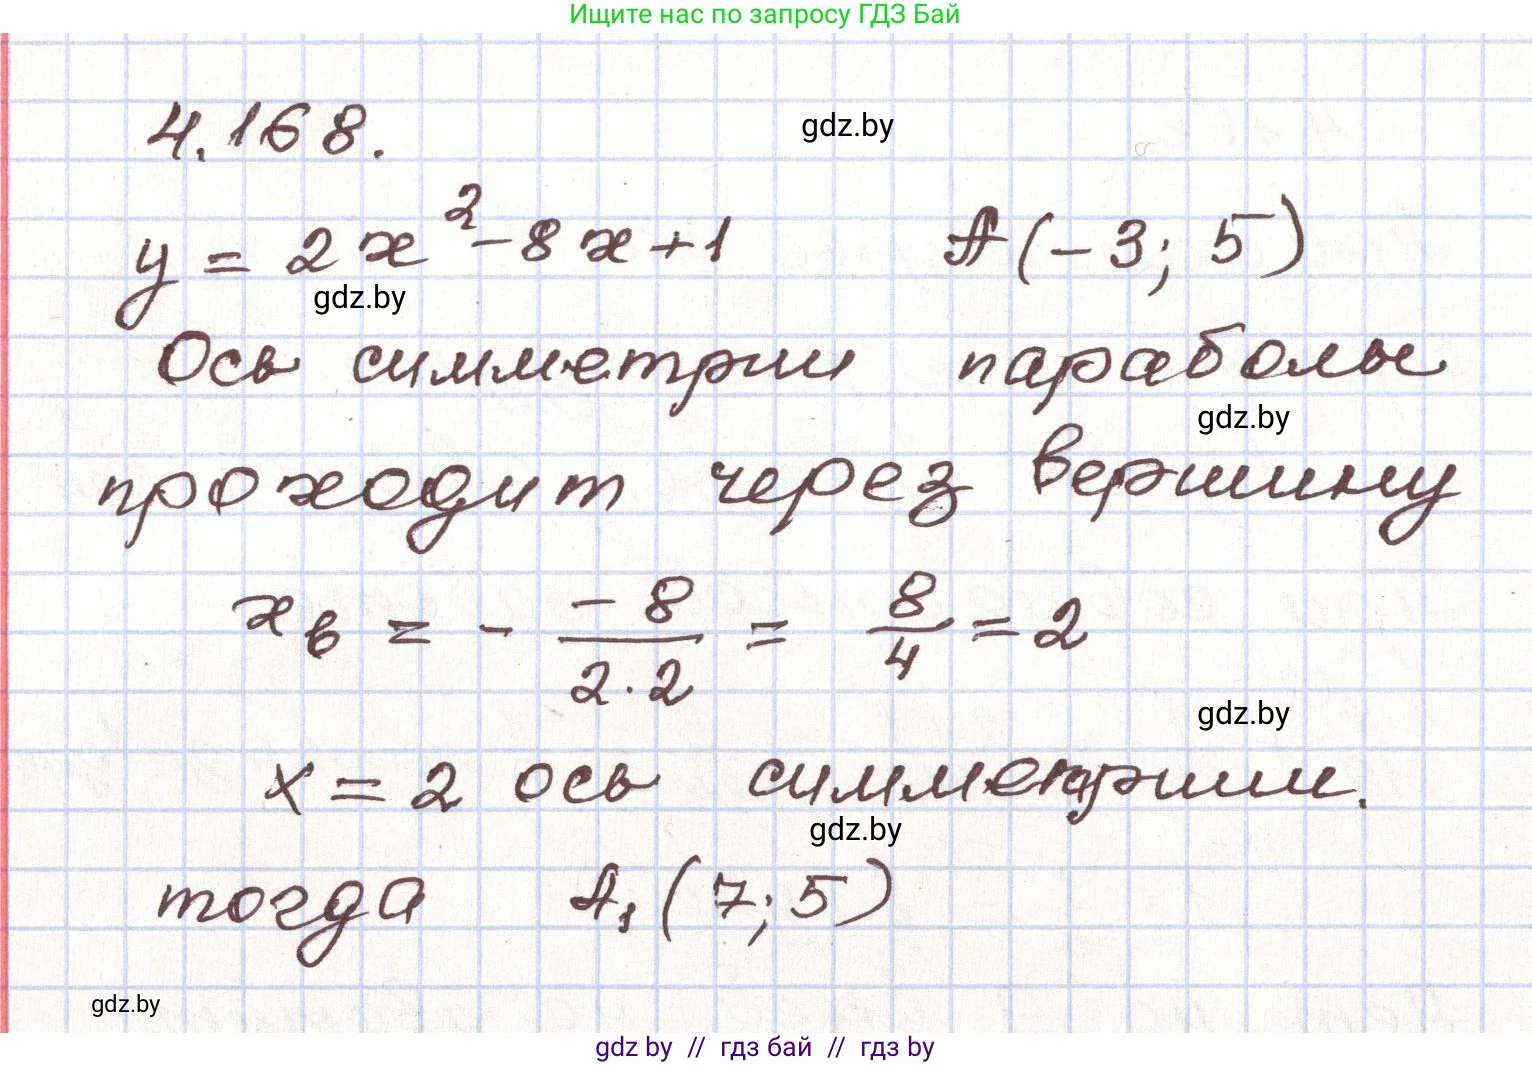 Ищите нас по запросу ГДЗ Бай
4.168.
gdz.by
y = 2x² - 8x + 1 A(-3; 5)
gdz.by
Ось симметрии параболы
gdz.by
проходит через вершину
xв = - -8/2·2 = 8/4 = 2
gdz.by
x = 2 ось симметрии.
gdz.by
тогда A₁(7; 5)
gdz.by
gdz by // гдз бай // гдз by